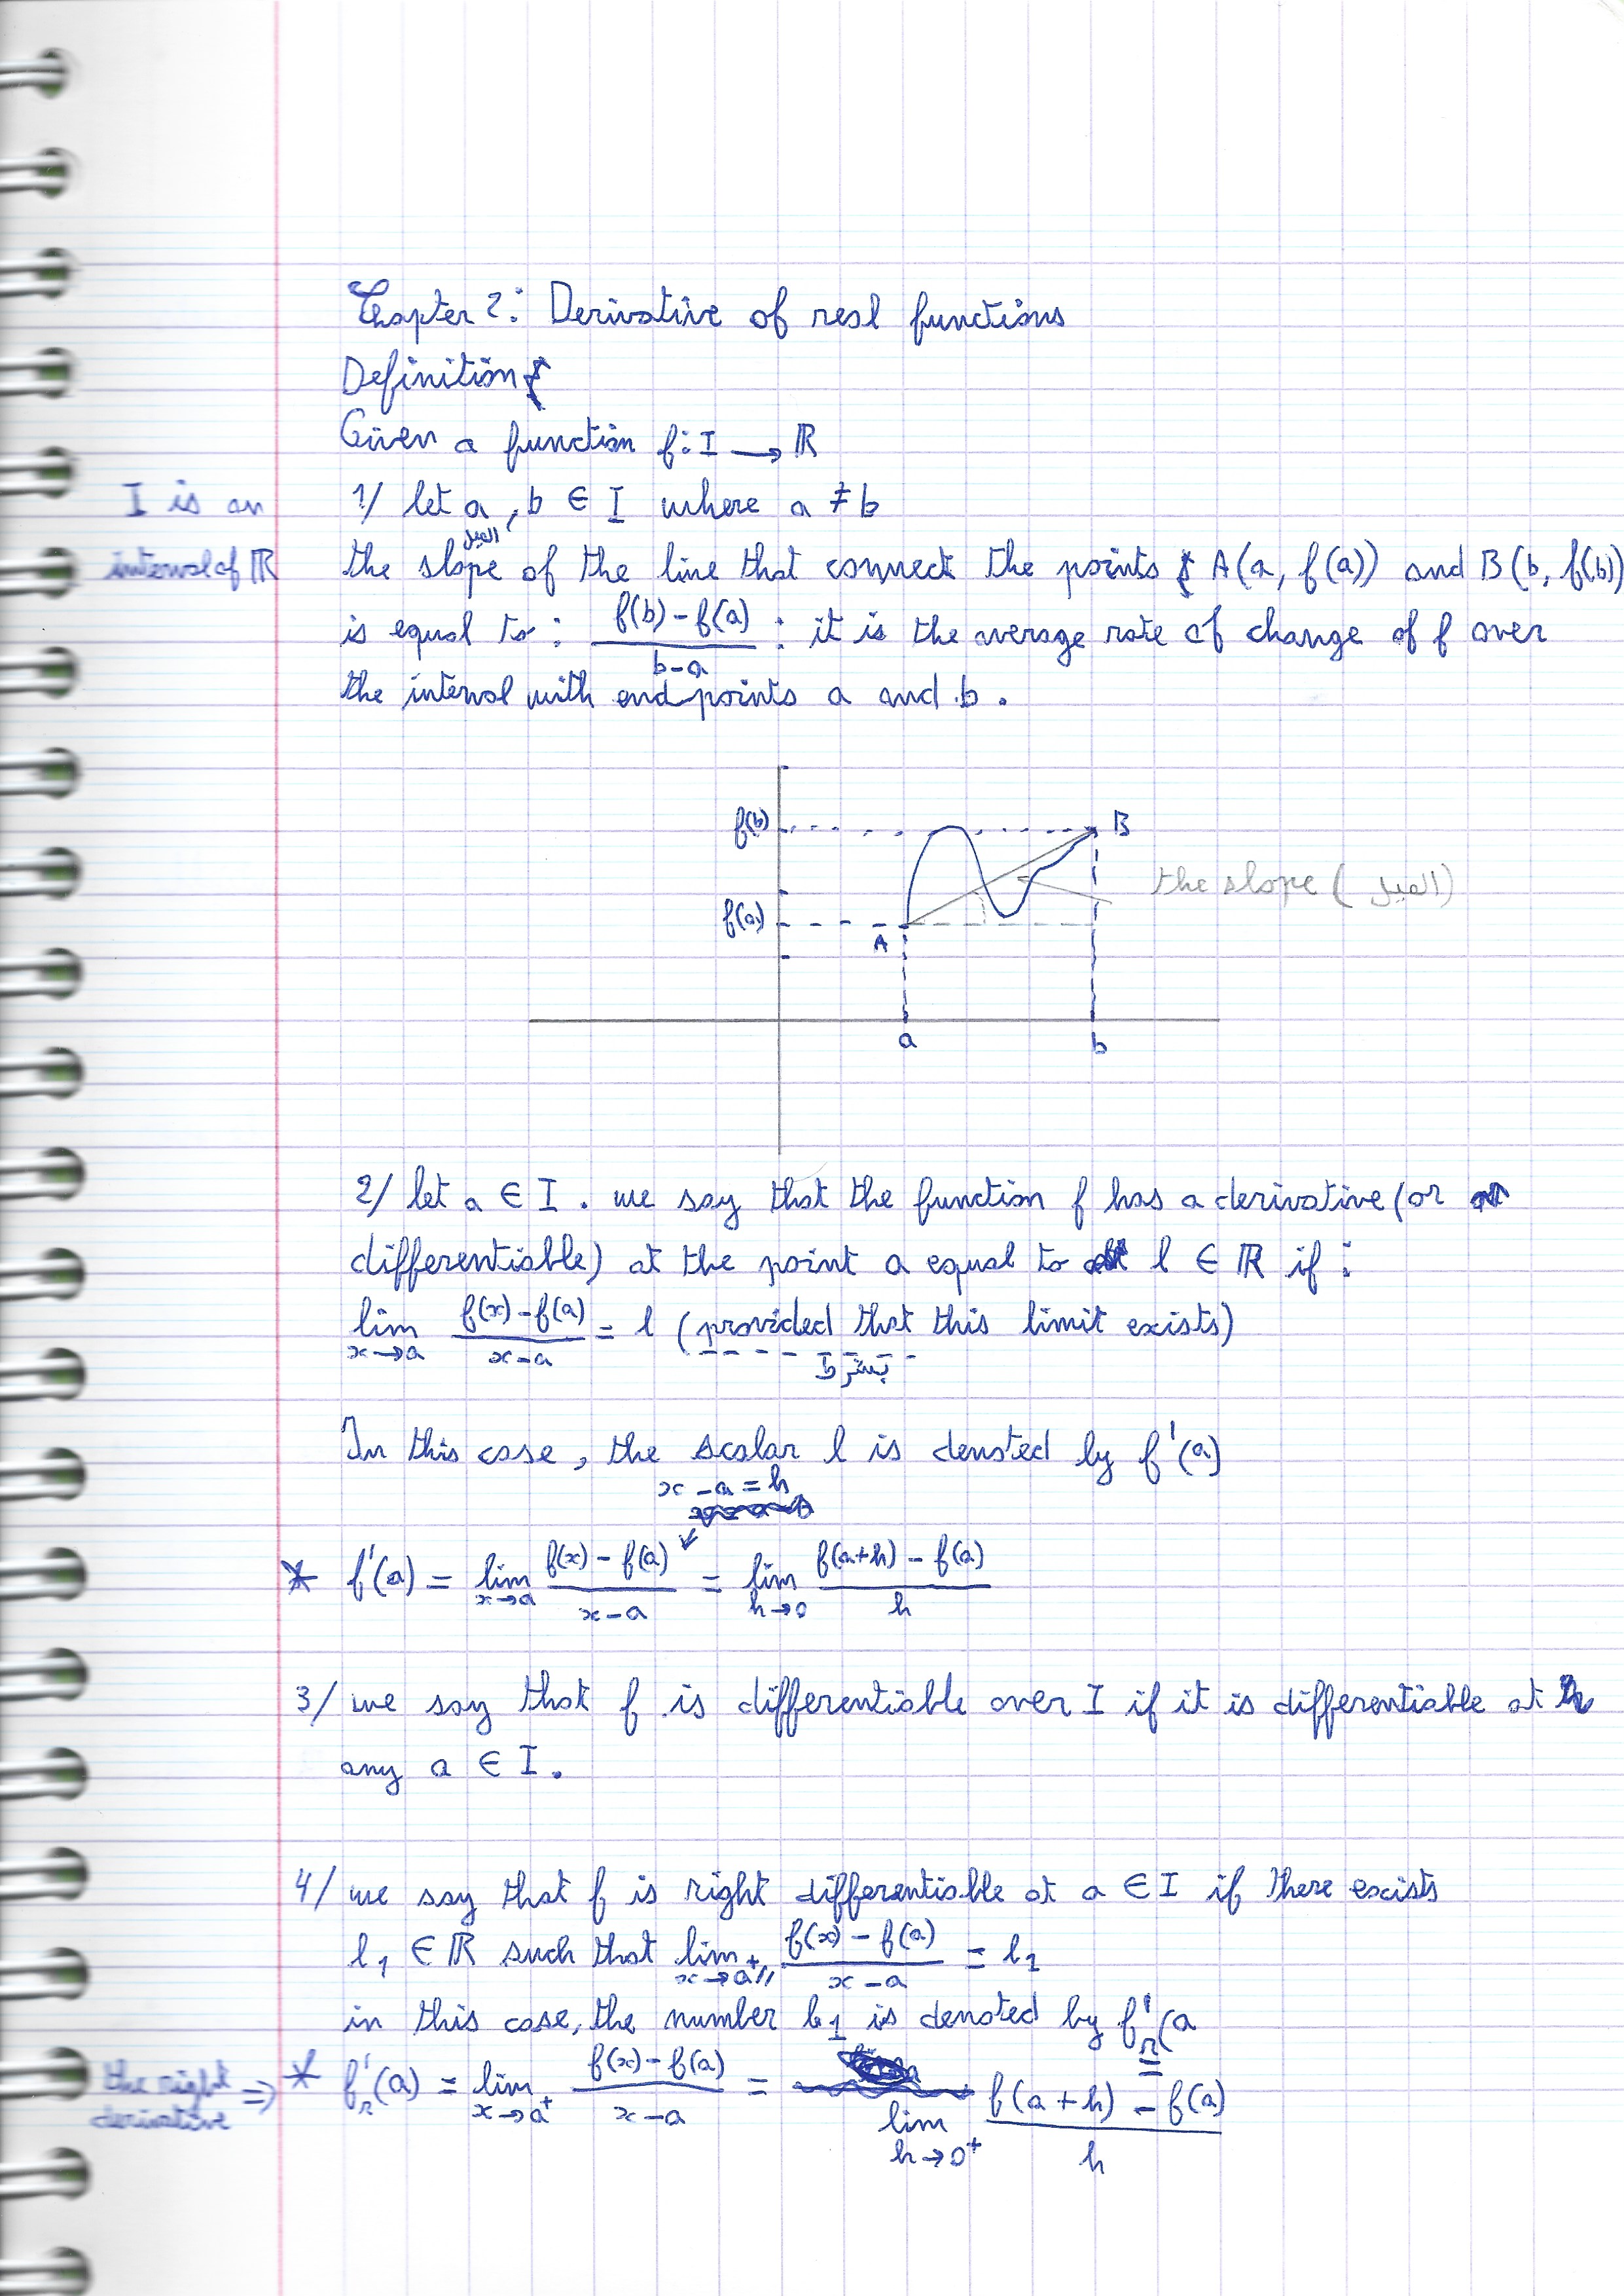 Chapter 2: Derivative of real functions
Definition
Given a function f: I → ℝ
I is an
interval of ℝ
1/ let a, b ∈ I where a ≠ b
الميل
the slope of the line that connect the points A(a, f(a)) and B(b, f(b))
is equal to : (f(b) - f(a))/(b-a) : it is the average rate of change of f over
the interval with end points a and b.
f(b)
B
the slope (الميل)
f(a)
A
a
b
2/ let a ∈ I. we say that the function f has a derivative (or
differentiable) at the point a equal to l ∈ ℝ if :
lim x→a (f(x) - f(a))/(x-a) = l (provided that this limit exists)
بشرط
In this case, the scalar l is denoted by f'(a)
x - a = h
* f'(a) = lim x→a (f(x) - f(a))/(x-a) = lim h→0 (f(a+h) - f(a))/h
3/ we say that f is differentiable over I if it is differentiable at
any a ∈ I.
4/ we say that f is right differentiable at a ∈ I if there exists
l₁ ∈ ℝ such that lim x→a⁺ (f(x) - f(a))/(x-a) = l₁
in this case, the number l₁ is denoted by f'r(a
the right ⇒
derivative
* f'r(a) = lim x→a⁺ (f(x) - f(a))/(x-a) = lim h→0⁺ (f(a+h) - f(a))/h